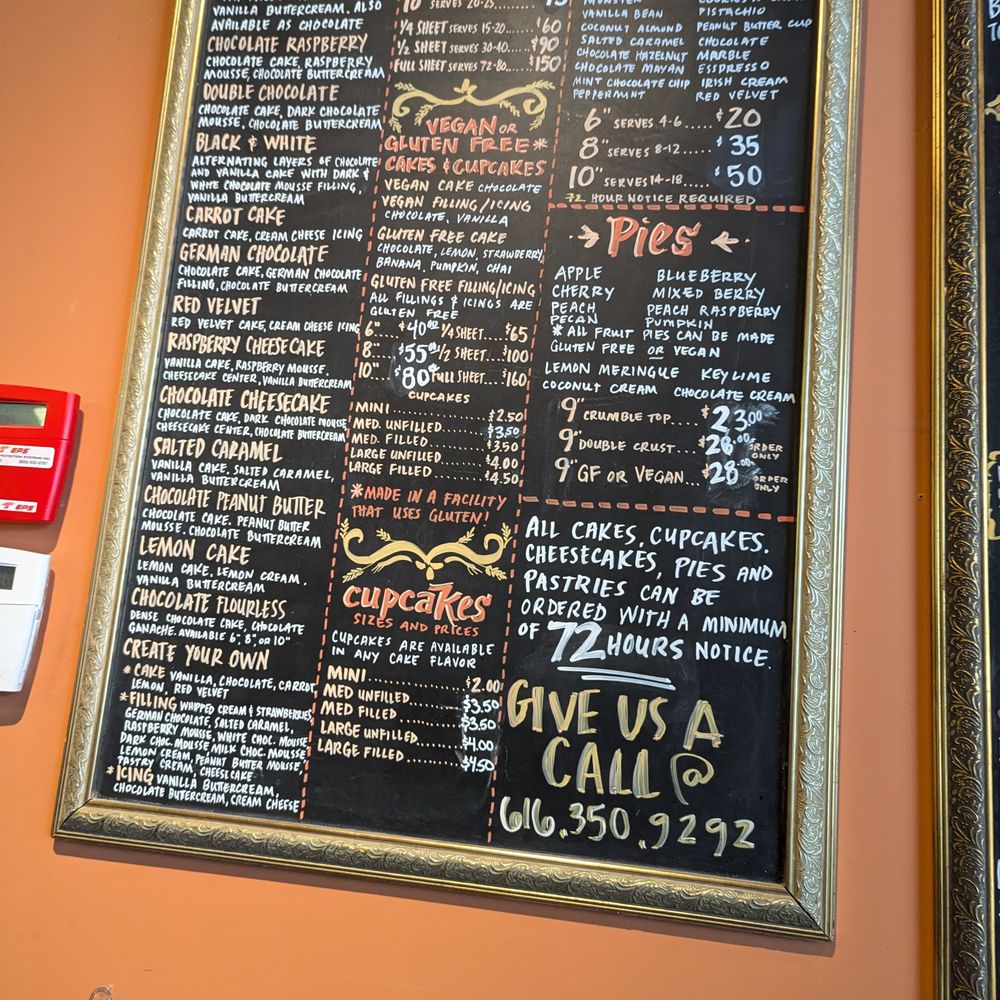 VANILLA BUTTERCREAM. ALSO
AVAILABLE AS CHOCOLATE
CHOCOLATE RASPBERRY
CHOCOLATE CAKE, RASPBERRY
MOUSSE, CHOCOLATE BUTTERCREAM
DOUBLE CHOCOLATE
CHOCOLATE CAKE, DARK CHOCOLATE
MOUSSE, CHOCOLATE BUTTERCREAM
BLACK & WHITE
ALTERNATING LAYERS OF CHOCOLATE
AND VANILLA CAKE WITH DARK &
WHITE CHOCOLATE MOUSSE FILLING,
VANILLA BUTTERCREAM
CARROT CAKE
CARROT CAKE, CREAM CHEESE ICING
GERMAN CHOCOLATE
CHOCOLATE CAKE, GERMAN CHOCOLATE
FILLING, CHOCOLATE BUTTERCREAM
RED VELVET
RED VELVET CAKE, CREAM CHEESE ICING
RASPBERRY CHEESECAKE
VANILLA CAKE, RASPBERRY MOUSSE,
CHEESECAKE CENTER, VANILLA BUTTERCREAM
CHOCOLATE CHEESECAKE
CHOCOLATE CAKE, DARK CHOCOLATE MOUSSE
CHEESECAKE CENTER, CHOCOLATE BUTTERCREAM
SALTED CARAMEL
VANILLA CAKE, SALTED CARAMEL,
VANILLA BUTTERCREAM
CHOCOLATE PEANUT BUTTER
CHOCOLATE CAKE, PEANUT BUTTER
MOUSSE, CHOCOLATE BUTTERCREAM
LEMON CAKE
LEMON CAKE, LEMON CREAM,
VANILLA BUTTERCREAM
CHOCOLATE FLOURLESS
DENSE CHOCOLATE CAKE, CHOCOLATE
GANACHE. AVAILABLE 6", 8", OR 10"
CREATE YOUR OWN
*CAKE VANILLA, CHOCOLATE, CARROT,
LEMON, RED VELVET
*FILLING WHIPPED CREAM & STRAWBERRIES,
GERMAN CHOCOLATE, SALTED CARAMEL,
RASPBERRY MOUSSE, WHITE CHOC. MOUSSE,
DARK CHOC. MOUSSE MILK CHOC. MOUSSE
LEMON CREAM, PEANUT BUTTER MOUSSE,
PASTRY CREAM, CHEESECAKE
*ICING VANILLA BUTTERCREAM,
CHOCOLATE BUTTERCREAM, CREAM CHEESE
10" SERVES 20-25
1/4 SHEET SERVES 15-20.....$60
1/2 SHEET SERVES 30-40.....$90
FULL SHEET SERVES 72-80.....$150
VEGAN OR
GLUTEN FREE*
CAKES & CUPCAKES
VEGAN CAKE CHOCOLATE
VEGAN FILLING/ICING
CHOCOLATE, VANILLA
GLUTEN FREE CAKE
CHOCOLATE, LEMON, STRAWBERRY
BANANA, PUMPKIN, CHAI
GLUTEN FREE FILLING/ICING
ALL FILLINGS & ICINGS ARE
GLUTEN FREE
6"....$40.00 1/4 SHEET....$65
8"....$55.00 1/2 SHEET....$100
10"...$80.00 FULL SHEET...$160
CUPCAKES
MINI..............$2.50
MED. UNFILLED.......$3.50
MED. FILLED.........$3.50
LARGE UNFILLED......$4.00
LARGE FILLED........$4.50
*MADE IN A FACILITY
THAT USES GLUTEN!
cupcakes
SIZES AND PRICES
CUPCAKES ARE AVAILABLE
IN ANY CAKE FLAVOR
MINI..............$2.00
MED UNFILLED........$3.50
MED FILLED..........$3.50
LARGE UNFILLED......$4.00
LARGE FILLED........$4.50
VANILLA BEAN PISTACHIO
COCONUT ALMOND PEANUT BUTTER CUP
SALTED CARAMEL CHOCOLATE
CHOCOLATE HAZELNUT MARBLE
CHOCOLATE MAYAN ESSPRESSO
MINT CHOCOLATE CHIP IRISH CREAM
PEPPERMINT RED VELVET
6" SERVES 4-6.....$20
8" SERVES 8-12.....$35
10" SERVES 14-18.....$50
72 HOUR NOTICE REQUIRED
Pies
APPLE BLUEBERRY
CHERRY MIXED BERRY
PEACH PEACH RASPBERRY
PECAN PUMPKIN
*ALL FRUIT PIES CAN BE MADE
GLUTEN FREE OR VEGAN
LEMON MERINGUE KEY LIME
COCONUT CREAM CHOCOLATE CREAM
9" CRUMBLE TOP....$23.00
9" DOUBLE CRUST....$26.00 ORDER ONLY
9" GF OR VEGAN...$28.00 ORDER ONLY
ALL CAKES, CUPCAKES,
CHEESECAKES, PIES AND
PASTRIES CAN BE
ORDERED WITH A MINIMUM
OF 72 HOURS NOTICE.
GIVE US A
CALL @
616.350.9292
EPS
EPS